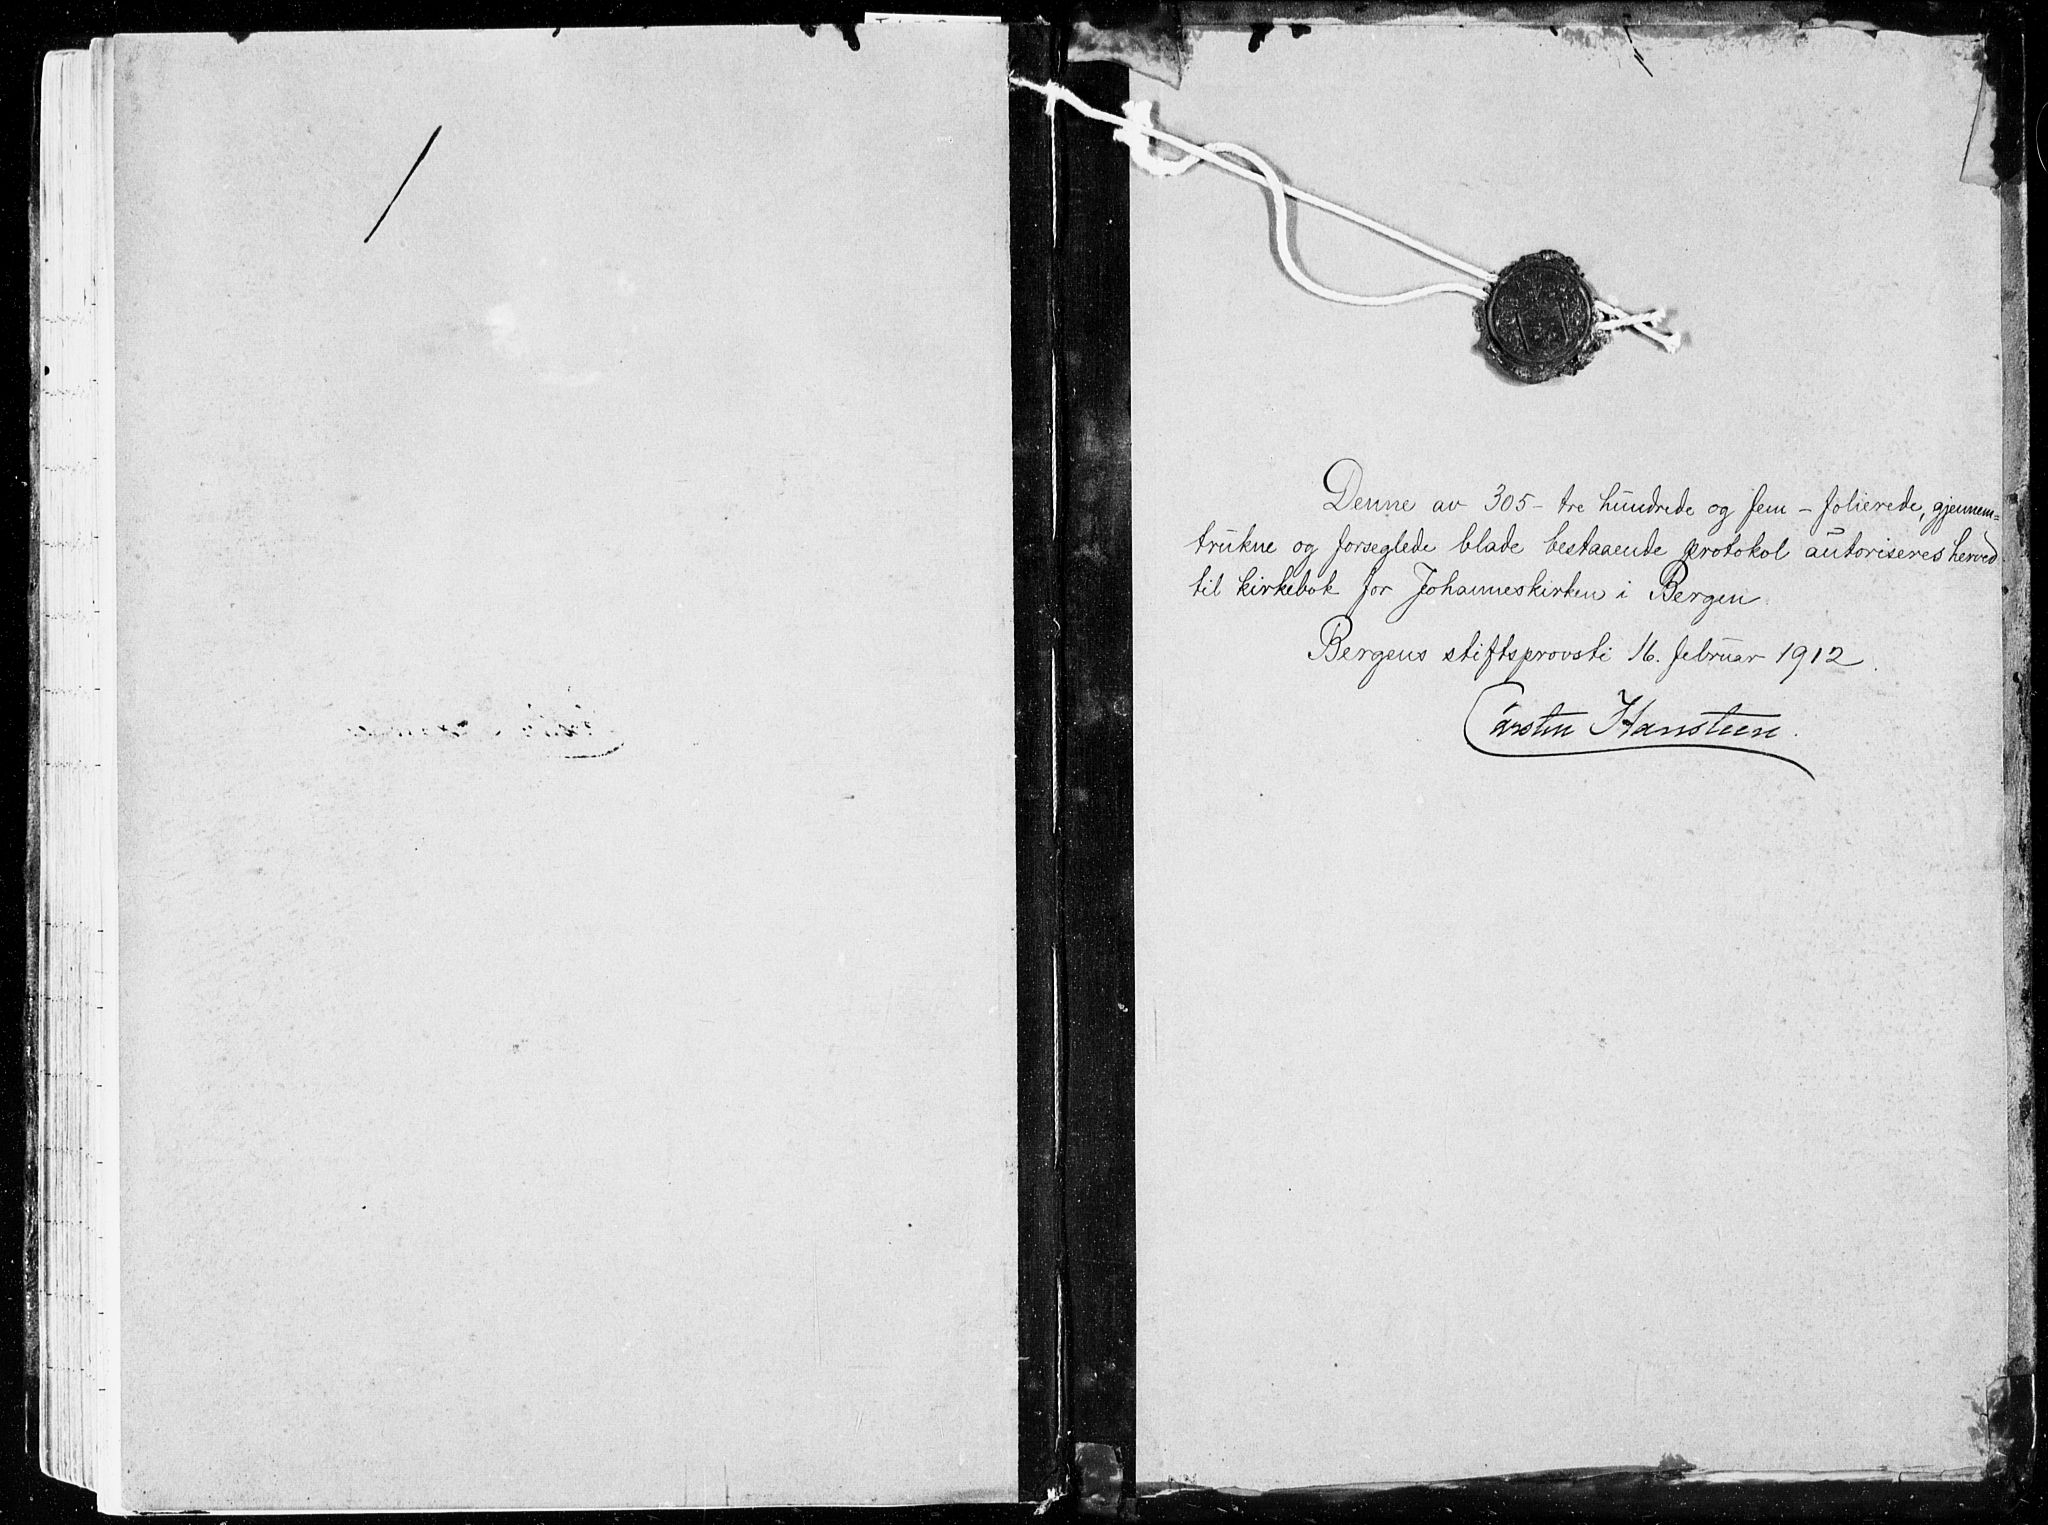 Denne av 305 - tre hundrede og fem - folierede, gjennem=
trukne og forseglede blade bestaaende protokol autoriseres herved
til kirkebok for Johanneskirken i Bergen.
Bergens stiftsprovsti 16. februar 1912.
Carsten Hansteen.